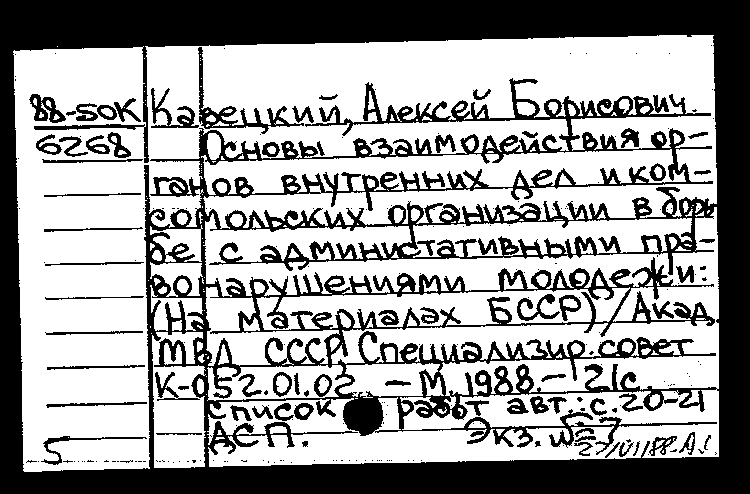 88-50К Кавецкий, Алексей Борисович.
6268 Основы взаимодействия ор-
ганов внутренних дел и ком-
сомольских организации в борь
бе с администативными пра-
вонарушениями молодежи:
(На материалах БССР) / Акад.
МВД СССР, Специализир. совет
К-052.01.02 - М. 1988. - 21с.
список работ авт.: с. 20-21
ДСП. Экз.
5